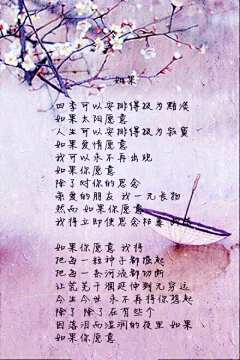 如果
四季可以安排得极为黯淡
如果太阳愿意
人生可以安排得极为寂寞
如果爱情愿意
我可以永不再出现
如果你愿意
除了对你的思念
亲爱的朋友 我一无长物
然而 如果你愿意
我将立即使思念枯萎
如果你愿意 我将
把每一粒种子都掘起
把每一条河流都切断
让荒芜干涸延伸到无穷远
今生今世 永不再将你想起
除了 除了在有些个
因落泪而湿润的夜里 如果
如果你愿意